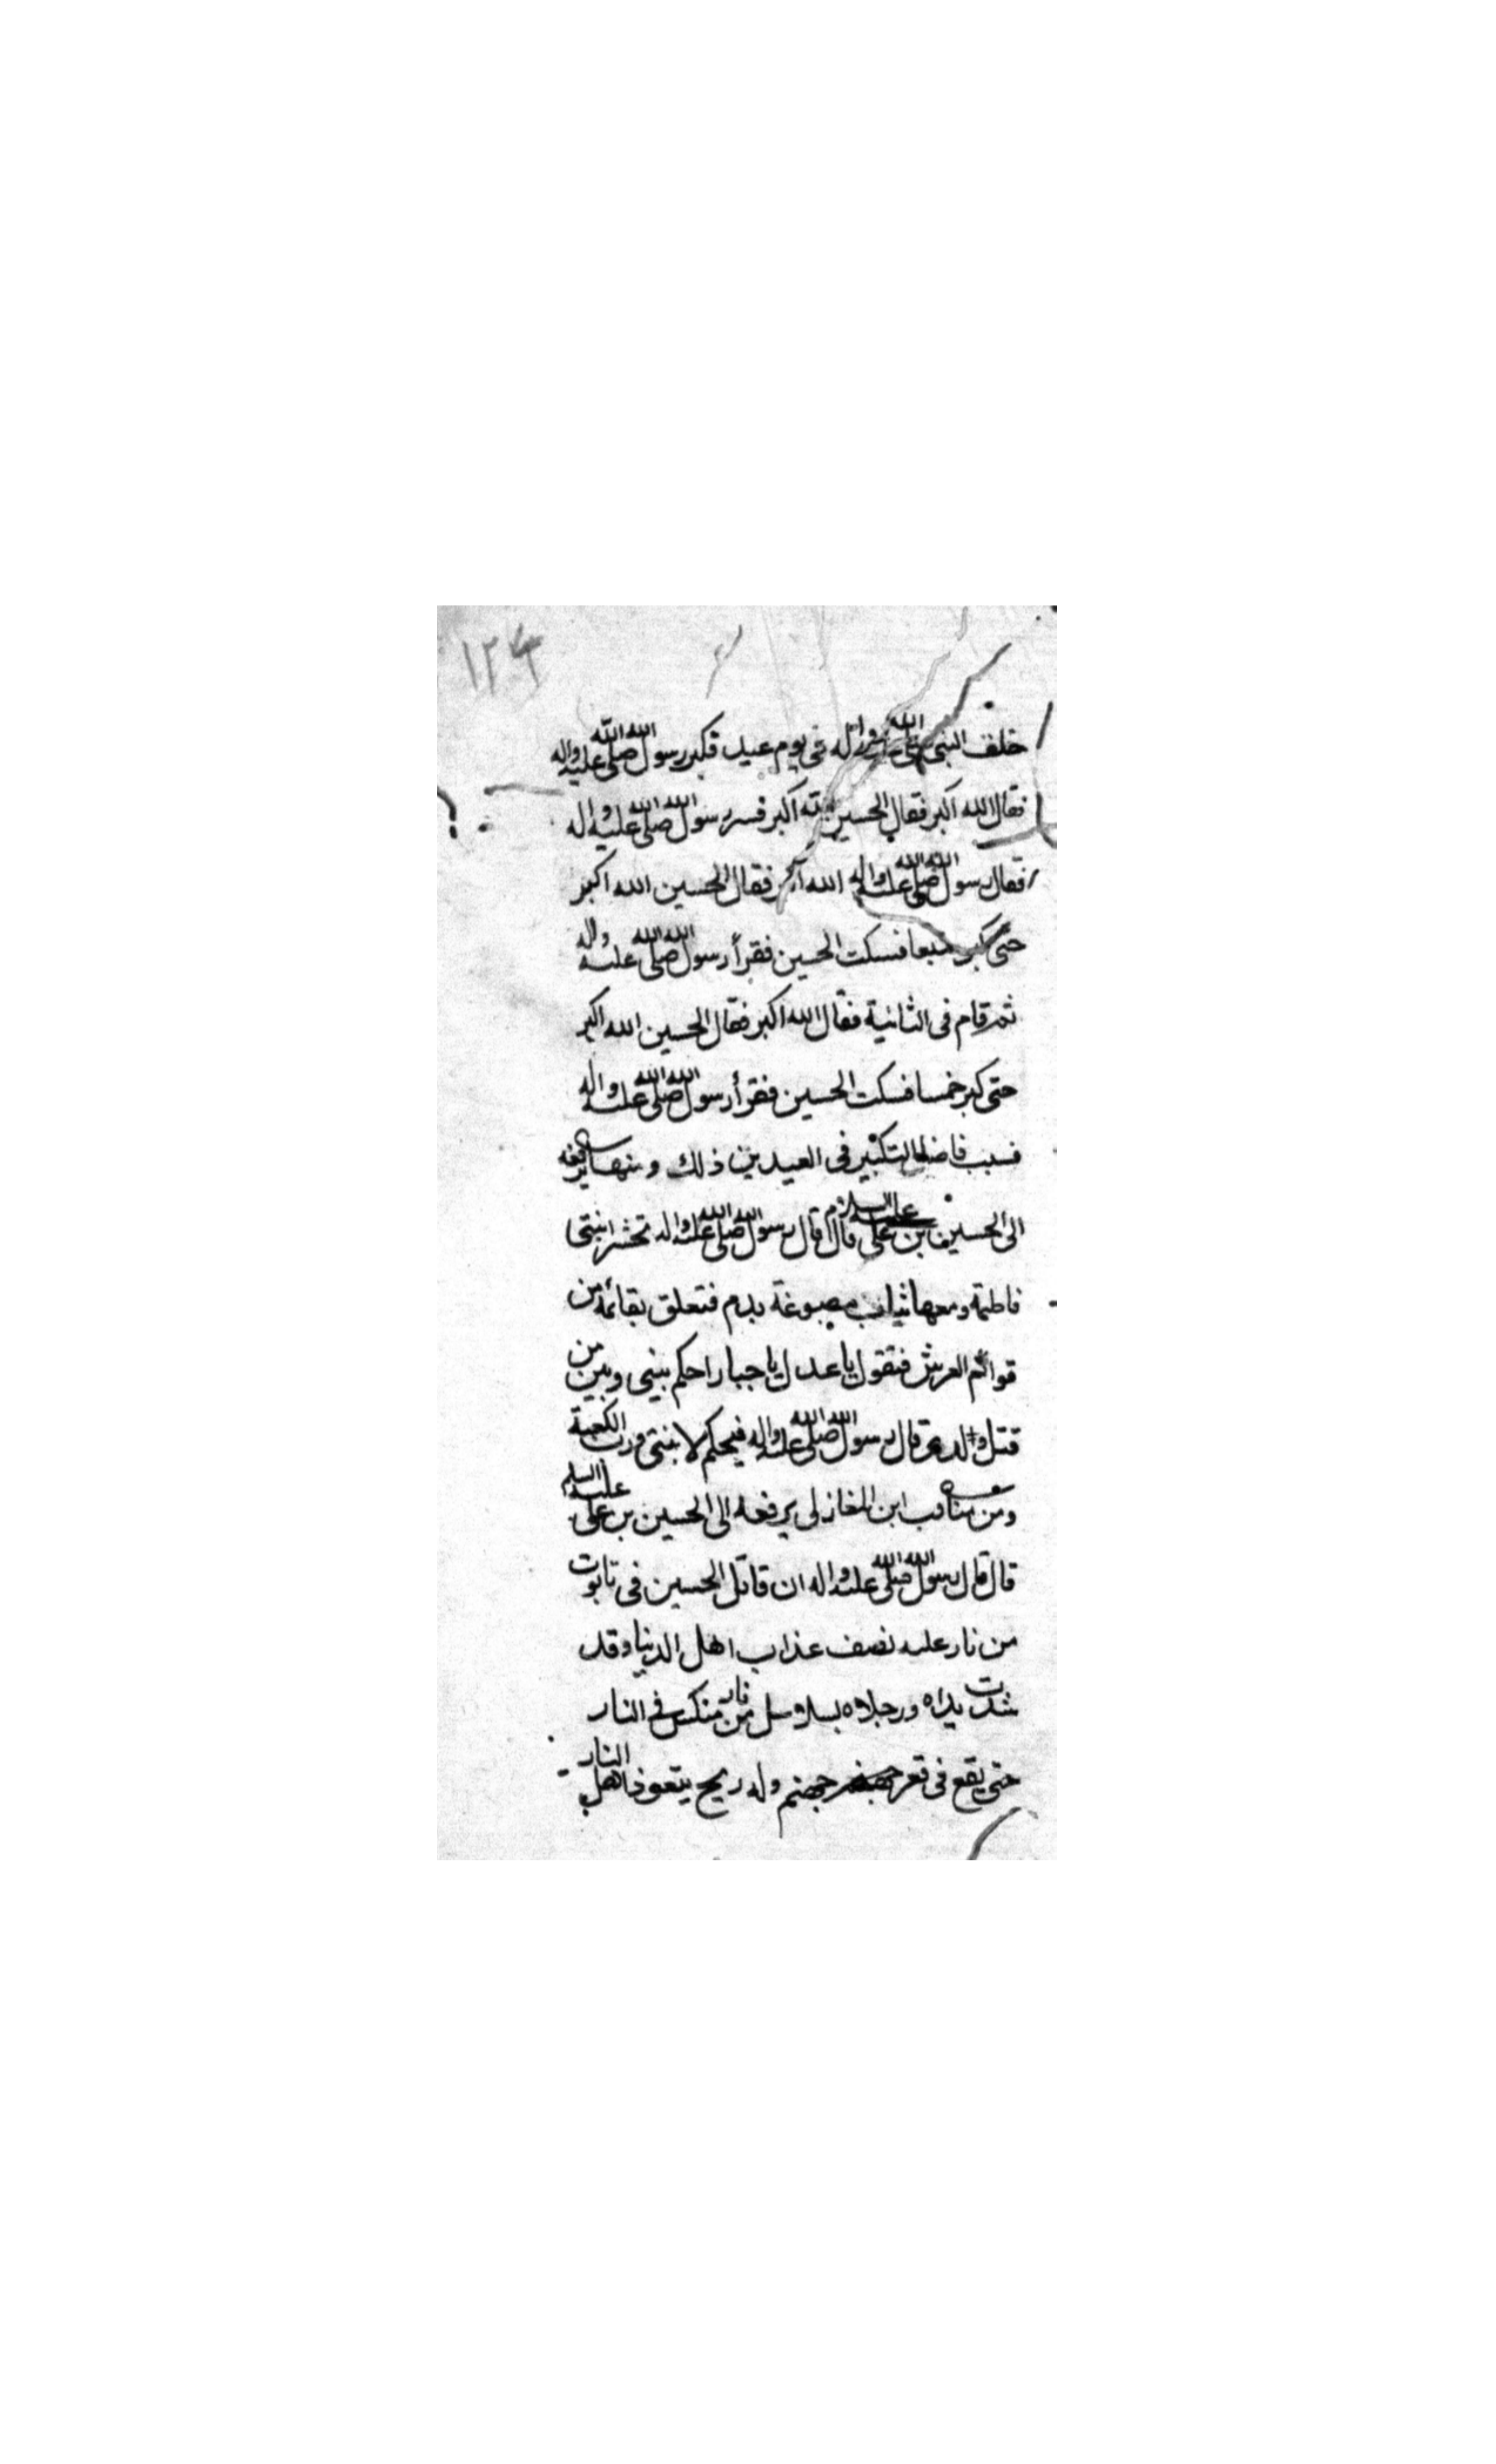 ١٢٤
خلف النبي صلى الله عليه واله في يوم عيد فكبر رسول الله صلى الله عليه واله
فقال الله اكبر فقال الحسين الله اكبر فسر رسول الله صلى الله عليه واله
فقال رسول الله صلى الله عليه واله الله اكبر فقال الحسين الله اكبر
حتى كبر سبعا فسكت الحسين فقرأ رسول الله صلى الله عليه واله
ثم قام في الثانية فقال الله اكبر فقال الحسين الله اكبر
حتى كبر خمسا فسكت الحسين فقرأ رسول الله صلى الله عليه واله
فسبب التكبير في العيدين ذلك ومنها يرفعه
الى الحسين بن علي عليه السلام قال قال رسول الله صلى الله عليه واله تحشر ابنتي
فاطمة ومعها ثياب مصبوغة بدم فتعلق بقائمة من
قوائم العرش فتقول يا عدل يا جبار احكم بيني وبين من
قتل ولدي قال رسول الله صلى الله عليه واله فيحكم لابنتي ورب الكعبة
ومن مناقب ابن المغازلي يرفعه الى الحسين بن علي عليه السلم
قال قال رسول الله صلى الله عليه واله ان قاتل الحسين في تابوت
من نار عليه نصف عذاب اهل الدنيا وقد
شدت يداه ورجلاه بسلاسل من نار منكس في النار
حتى يقع في قعر جهنم وله ريح يتعوذ اهل النار